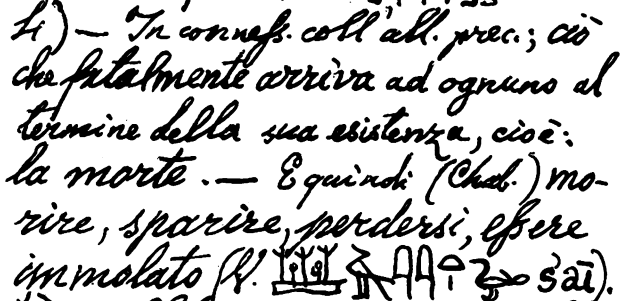 4) — In conneſs. coll'all. prec.; ciò
che fatalmente arriva ad ognuno al
termine della sua esistenza, cioè:
la morte. — E quindi (Chab.) mo-
rire, sparire, perdersi, eſsere
immolato (V. šai).